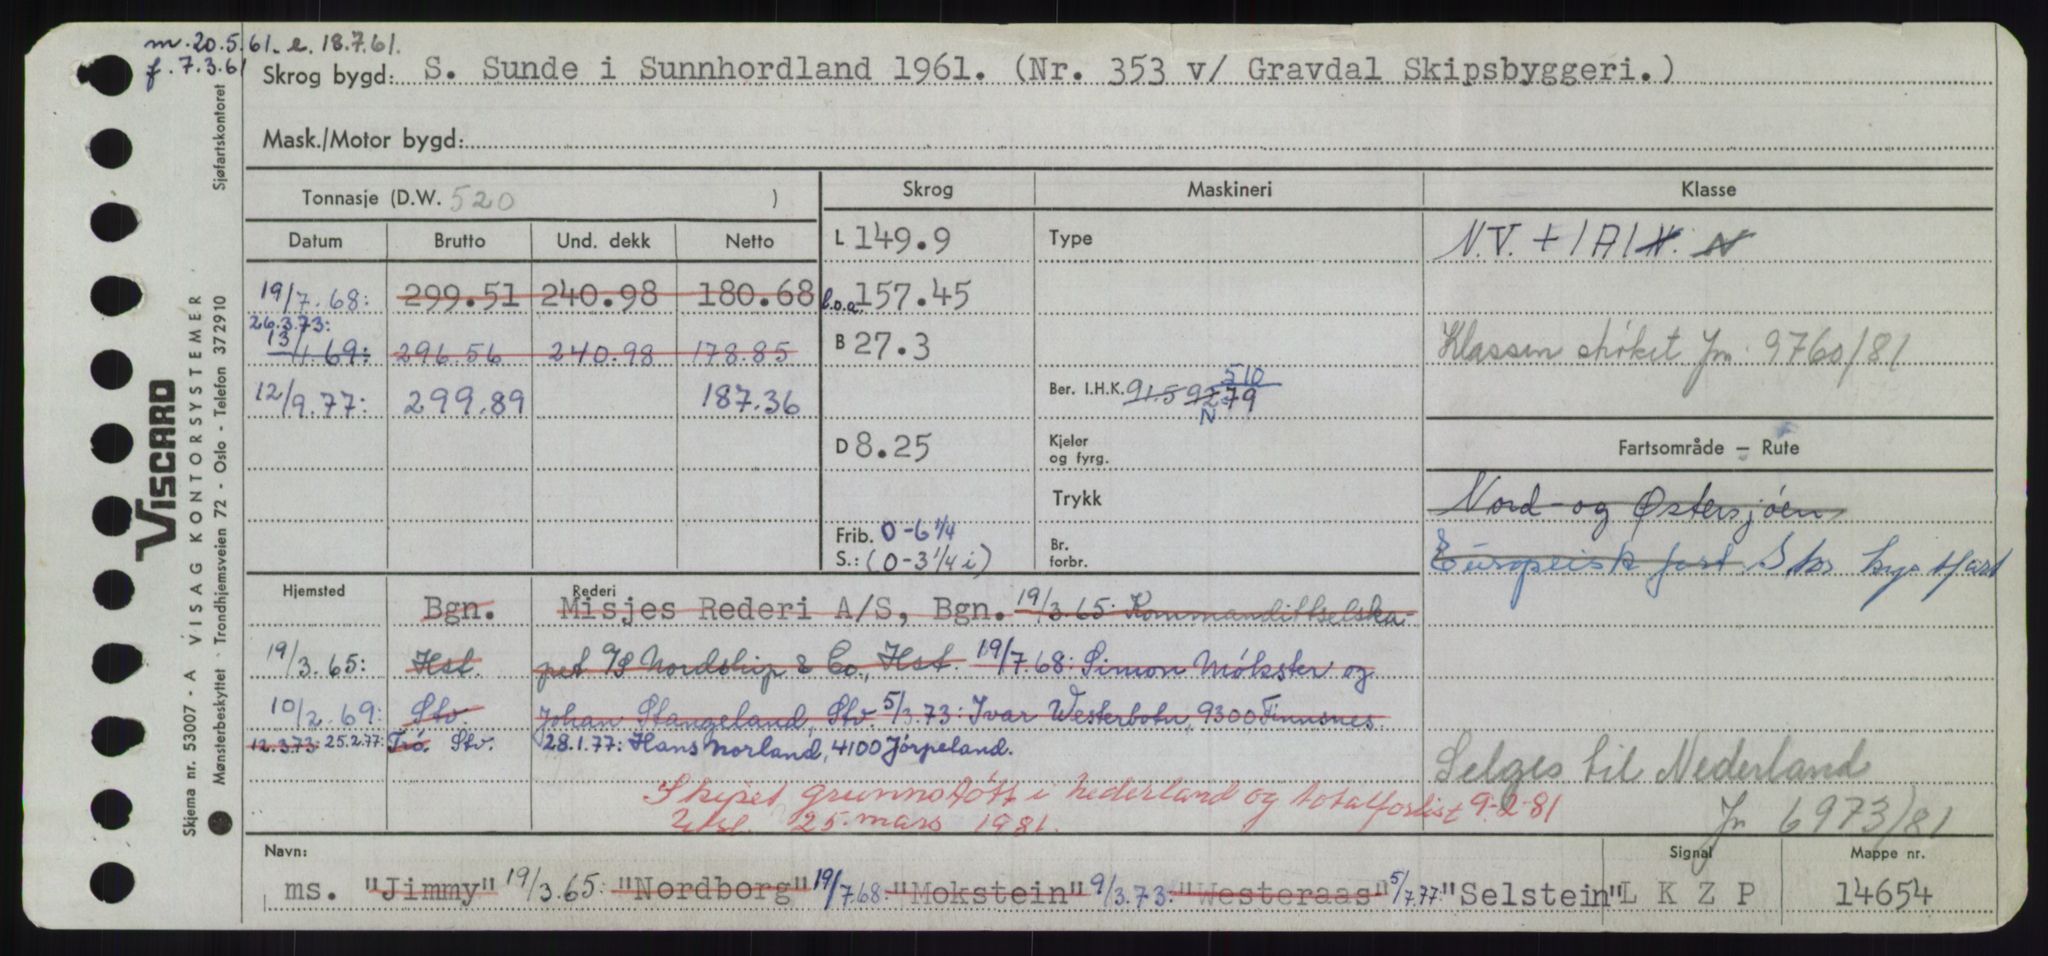 m. 20.5.61. e. 18.7.61.
f. 7.3.61
Skrog bygd: S. Sunde i Sunnhordland 1961. (Nr. 353 v/ Gravdal Skipsbyggeri.)
Mask./Motor bygd:
Tonnasje (D.W. 520 )
Skrog Maskineri Klasse
Datum Brutto Und. dekk Netto
L 149.9 Type N.V. + 1A1 N. N
19/7.68: 299.51 240.98 180.68 l.o.a. 157.45
26.3.73:
13/1 69: 296.56 240.98 178.85 B 27.3 Klassen strøket Jnr. 9760/81
510
12/9.77: 299.89 187.36 Ber. I.H.K. 91.5 92 79
N
D 8.25 Kjeler og fyrg. Fartsområde — Rute
Trykk Nord- og Østersjøen
Frib. 0-6 1/4 Br. forbr.
S.: (0-3 1/4 i) Europeisk fart. Stor kystfart
Hjemsted Rederi
Bgn. Misjes Rederi A/S, Bgn. 19/3.65: Kommandittselska-
19/3.65: Hst. pet I/S Nordship & Co., Hst. 19/7.68: Simon Møkster og
10/2.69: Stv. Johan Stangeland, Stv. 5/3.73: Ivar Westerbotn, 9300 Finnsnes.
12.3.73: 25.2.77: Trø. Stv. 28.1.77: Hans Norland, 4100 Jørpeland.
Selges til Nederland
Skipet grunnstøtt i Nederland og totalforlist 9-2-81
Jnr 6973/81
25. mars 1981.
Navn: Signal Mappe nr.
ms. "Jimmy" 19/3.65: "Nordborg" 19/7.68: "Mokstein" 9/3.73: "Westeraas" 5/7.77: "Selstein" L K Z P 14654
VISCARD
Skjema nr. 53007 - A VISAG KONTORSYSTEMER Sjøfartskontoret
Mønsterbeskyttet Trondhjemsveien 72 - Oslo - Telefon 372910